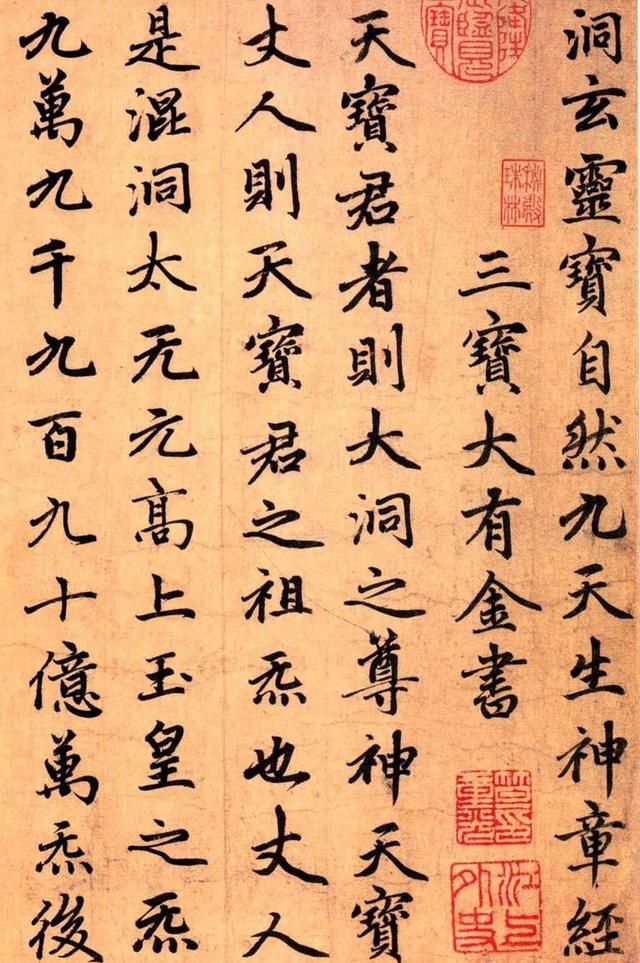 洞玄靈寶自然九天生神章經
三寶大有金書
天寶君者則大洞之尊神天寶
丈人則天寶君之祖炁也丈人
是混洞太无元高上玉皇之炁
九萬九千九百九十億萬炁後